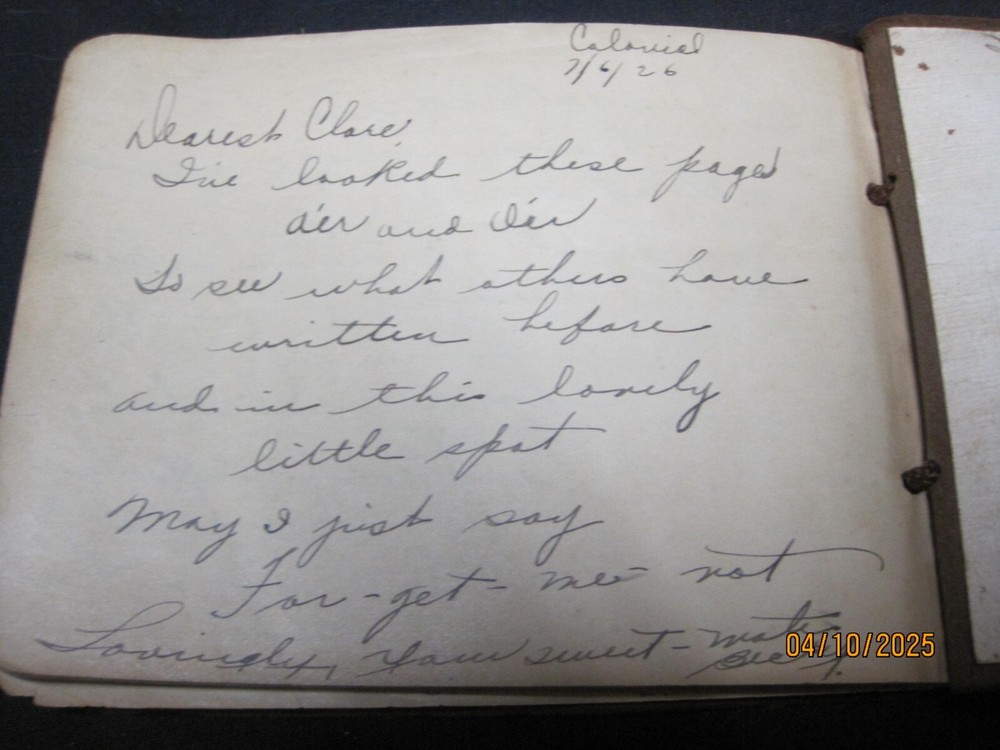 Colonial
7/6/26
Dearest Clare,
I've looked these pages
o'er and O'er
To see what others have
written before
and in this lovely
little spot
May I just say
For-get-me-not
Lovingly, Your sweet-mate
04/10/2025